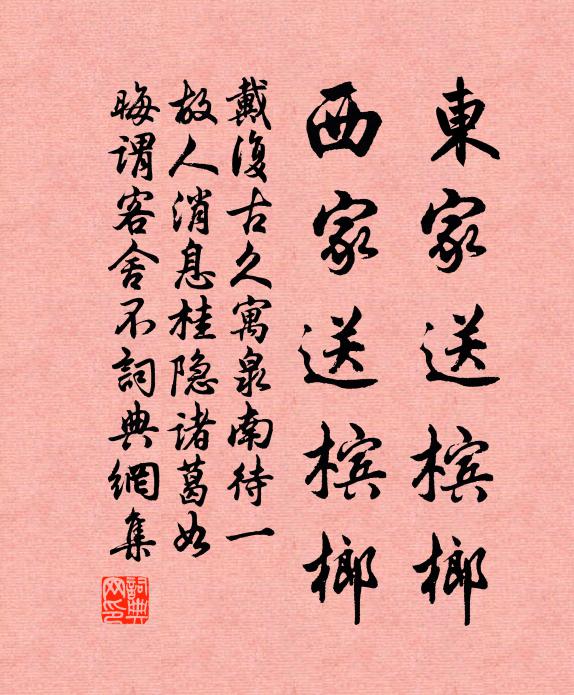 東家送槟榔
西家送槟榔
戴復古久寓泉南待一
故人消息桂隐诸葛如
晦谓客舍不詞典網集
詞典网印